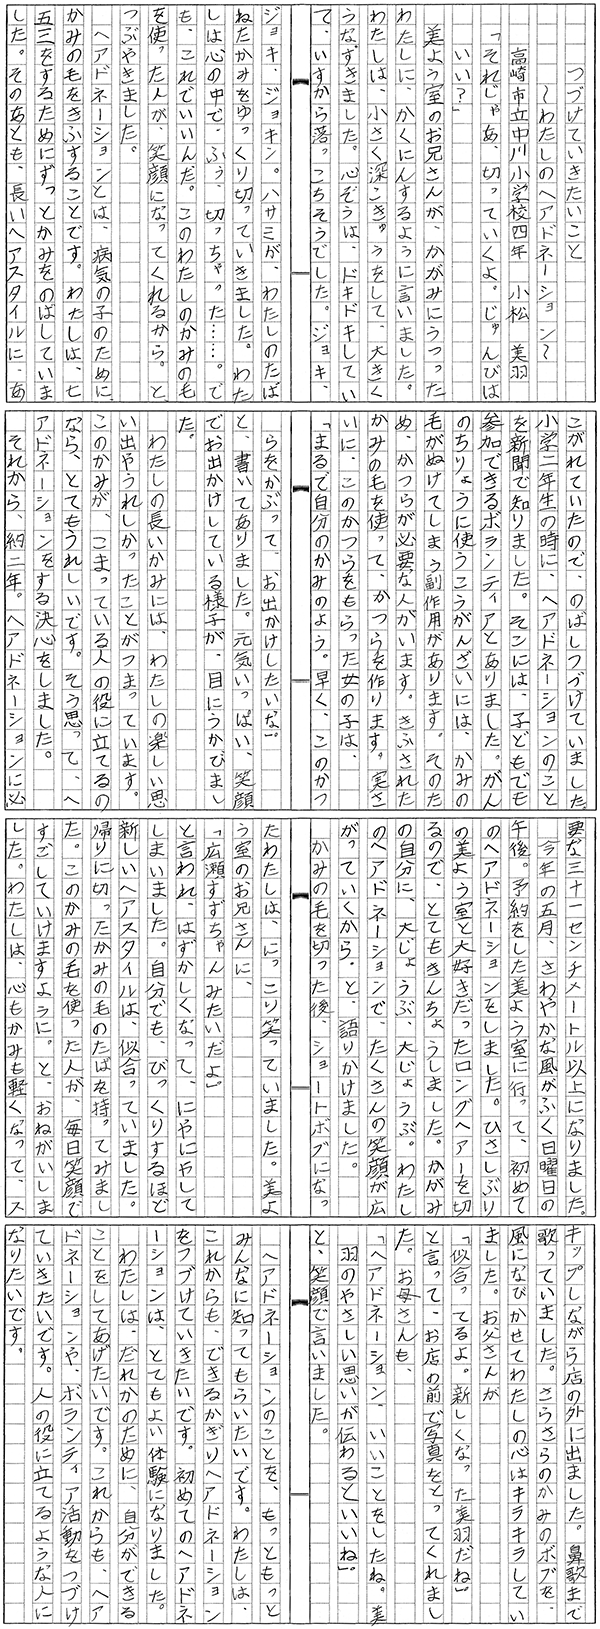 つづけていきたいこと
〜わたしのヘアドネーション〜
高崎市立中川小学校四年　小松　美羽
「それじゃあ、切っていくよ。じゅんびは
いい？」
美よう室のお兄さんが、かがみにうつった
わたしに、かくにんするように言いました。
わたしは、小さく深こきゅうをして、大きく
うなずきました。心ぞうは、ドキドキしてい
て、いすから落っこちそうでした。ジョキ、
ジョキ、ジョキン。ハサミが、わたしのたば
ねたかみをゆっくり切っていきました。わた
しは心の中で、ふぅ、切っちゃった……。で
も、これでいいんだ。このわたしのかみの毛
を使った人が、笑顔になってくれるから。と
つぶやきました。
ヘアドネーションとは、病気の子のために
かみの毛をきふすることです。わたしは、七
五三をするためにずっとかみをのばしていま
した。そのあとも、長いヘアスタイルに、あ
こがれていたので、のばしつづけていました。
小学二年生の時に、ヘアドネーションのこと
を新聞で知りました。そこには、子どもでも
参加できるボランティアとありました。がん
のちりょうに使うこうがんざいには、かみの
毛がぬけてしまう副作用があります。そのた
め、かつらが必要な人がいます。きふされた
かみの毛を使って、かつらを作ります。実さ
いに、このかつらをもらった女の子は、
「まるで自分のかみのよう。早く、このかつ
らをかぶって、お出かけしたいな」
と、書いてありました。元気いっぱい、笑顔
でお出かけしている様子が、目にうかびまし
た。
わたしの長いかみには、わたしの楽しい思
い出やうれしかったことがつまっています。
このかみが、こまっている人の役に立てるの
なら、とてもうれしいです。そう思って、ヘ
アドネーションをする決心をしました。
それから、約二年。ヘアドネーションに必
要な三十一センチメートル以上になりました。
今年の五月、さわやかな風がふく日曜日の
午後。予約をした美よう室に行って、初めて
のヘアドネーションをしました。ひさしぶり
の美よう室と大好きだったロングヘアーを切
るので、とてもきんちょうしました。かがみ
の自分に、大じょうぶ、大じょうぶ。わたし
のヘアドネーションで、たくさんの笑顔が広
がっていくから。と、語りかけました。
かみの毛を切った後、ショートボブになっ
たわたしは、にっこり笑っていました。美よ
う室のお兄さんに、
「広瀬すずちゃんみたいだよ」
と言われ、はずかしくなって、にやにやして
しまいました。自分でも、びっくりするほど
新しいヘアスタイルは、似合っていました。
帰りに切ったかみの毛のたばを持ってみまし
た。このかみの毛を使った人が、毎日笑顔で
すごしていけますように。と、おねがいしま
した。わたしは、心もかみも軽くなって、ス
キップしながら店の外に出ました。鼻歌まで
歌っていました。さらさらのかみのボブを、
風になびかせてわたしの心はキラキラしてい
ました。お父さんが
「似合ってるよ。新しくなった美羽だね」
と言って、お店の前で写真をとってくれまし
た。お母さんも、
「ヘアドネーション、いいことをしたね。美
羽のやさしい思いが伝わるといいね」。
と、笑顔で言いました。
ヘアドネーションのことを、もっともっと
みんなに知ってもらいたいです。わたしは、
これからも、できるかぎりヘアドネーション
をつづけていきたいです。初めてのヘアドネ
ーションは、とてもよい体験になりました。
わたしは、だれかのために、自分ができる
ことをしてあげたいです。これからも、ヘア
ドネーションや、ボランティア活動をつづけ
ていきたいです。人の役に立てるような人に
なりたいです。